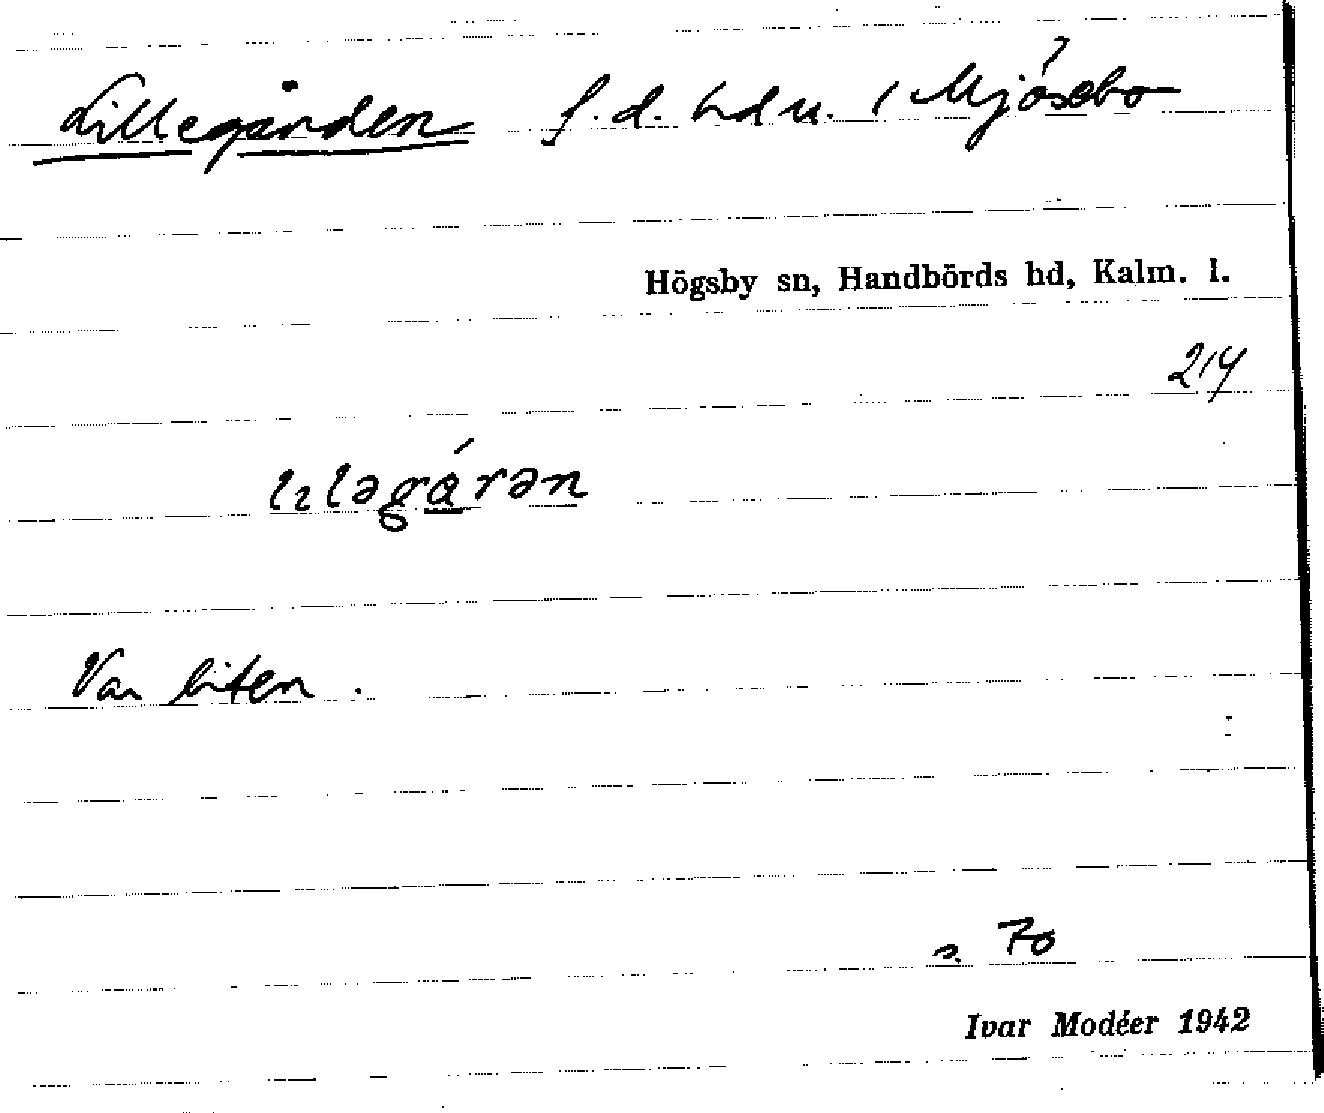 Lillegården f.d. hdn. i Mjösebo
Högsby sn, Handbörds hd, Kalm. l.
214
lıləgá̱rən
Var liten.
s. 70
Ivar Modéer 1942